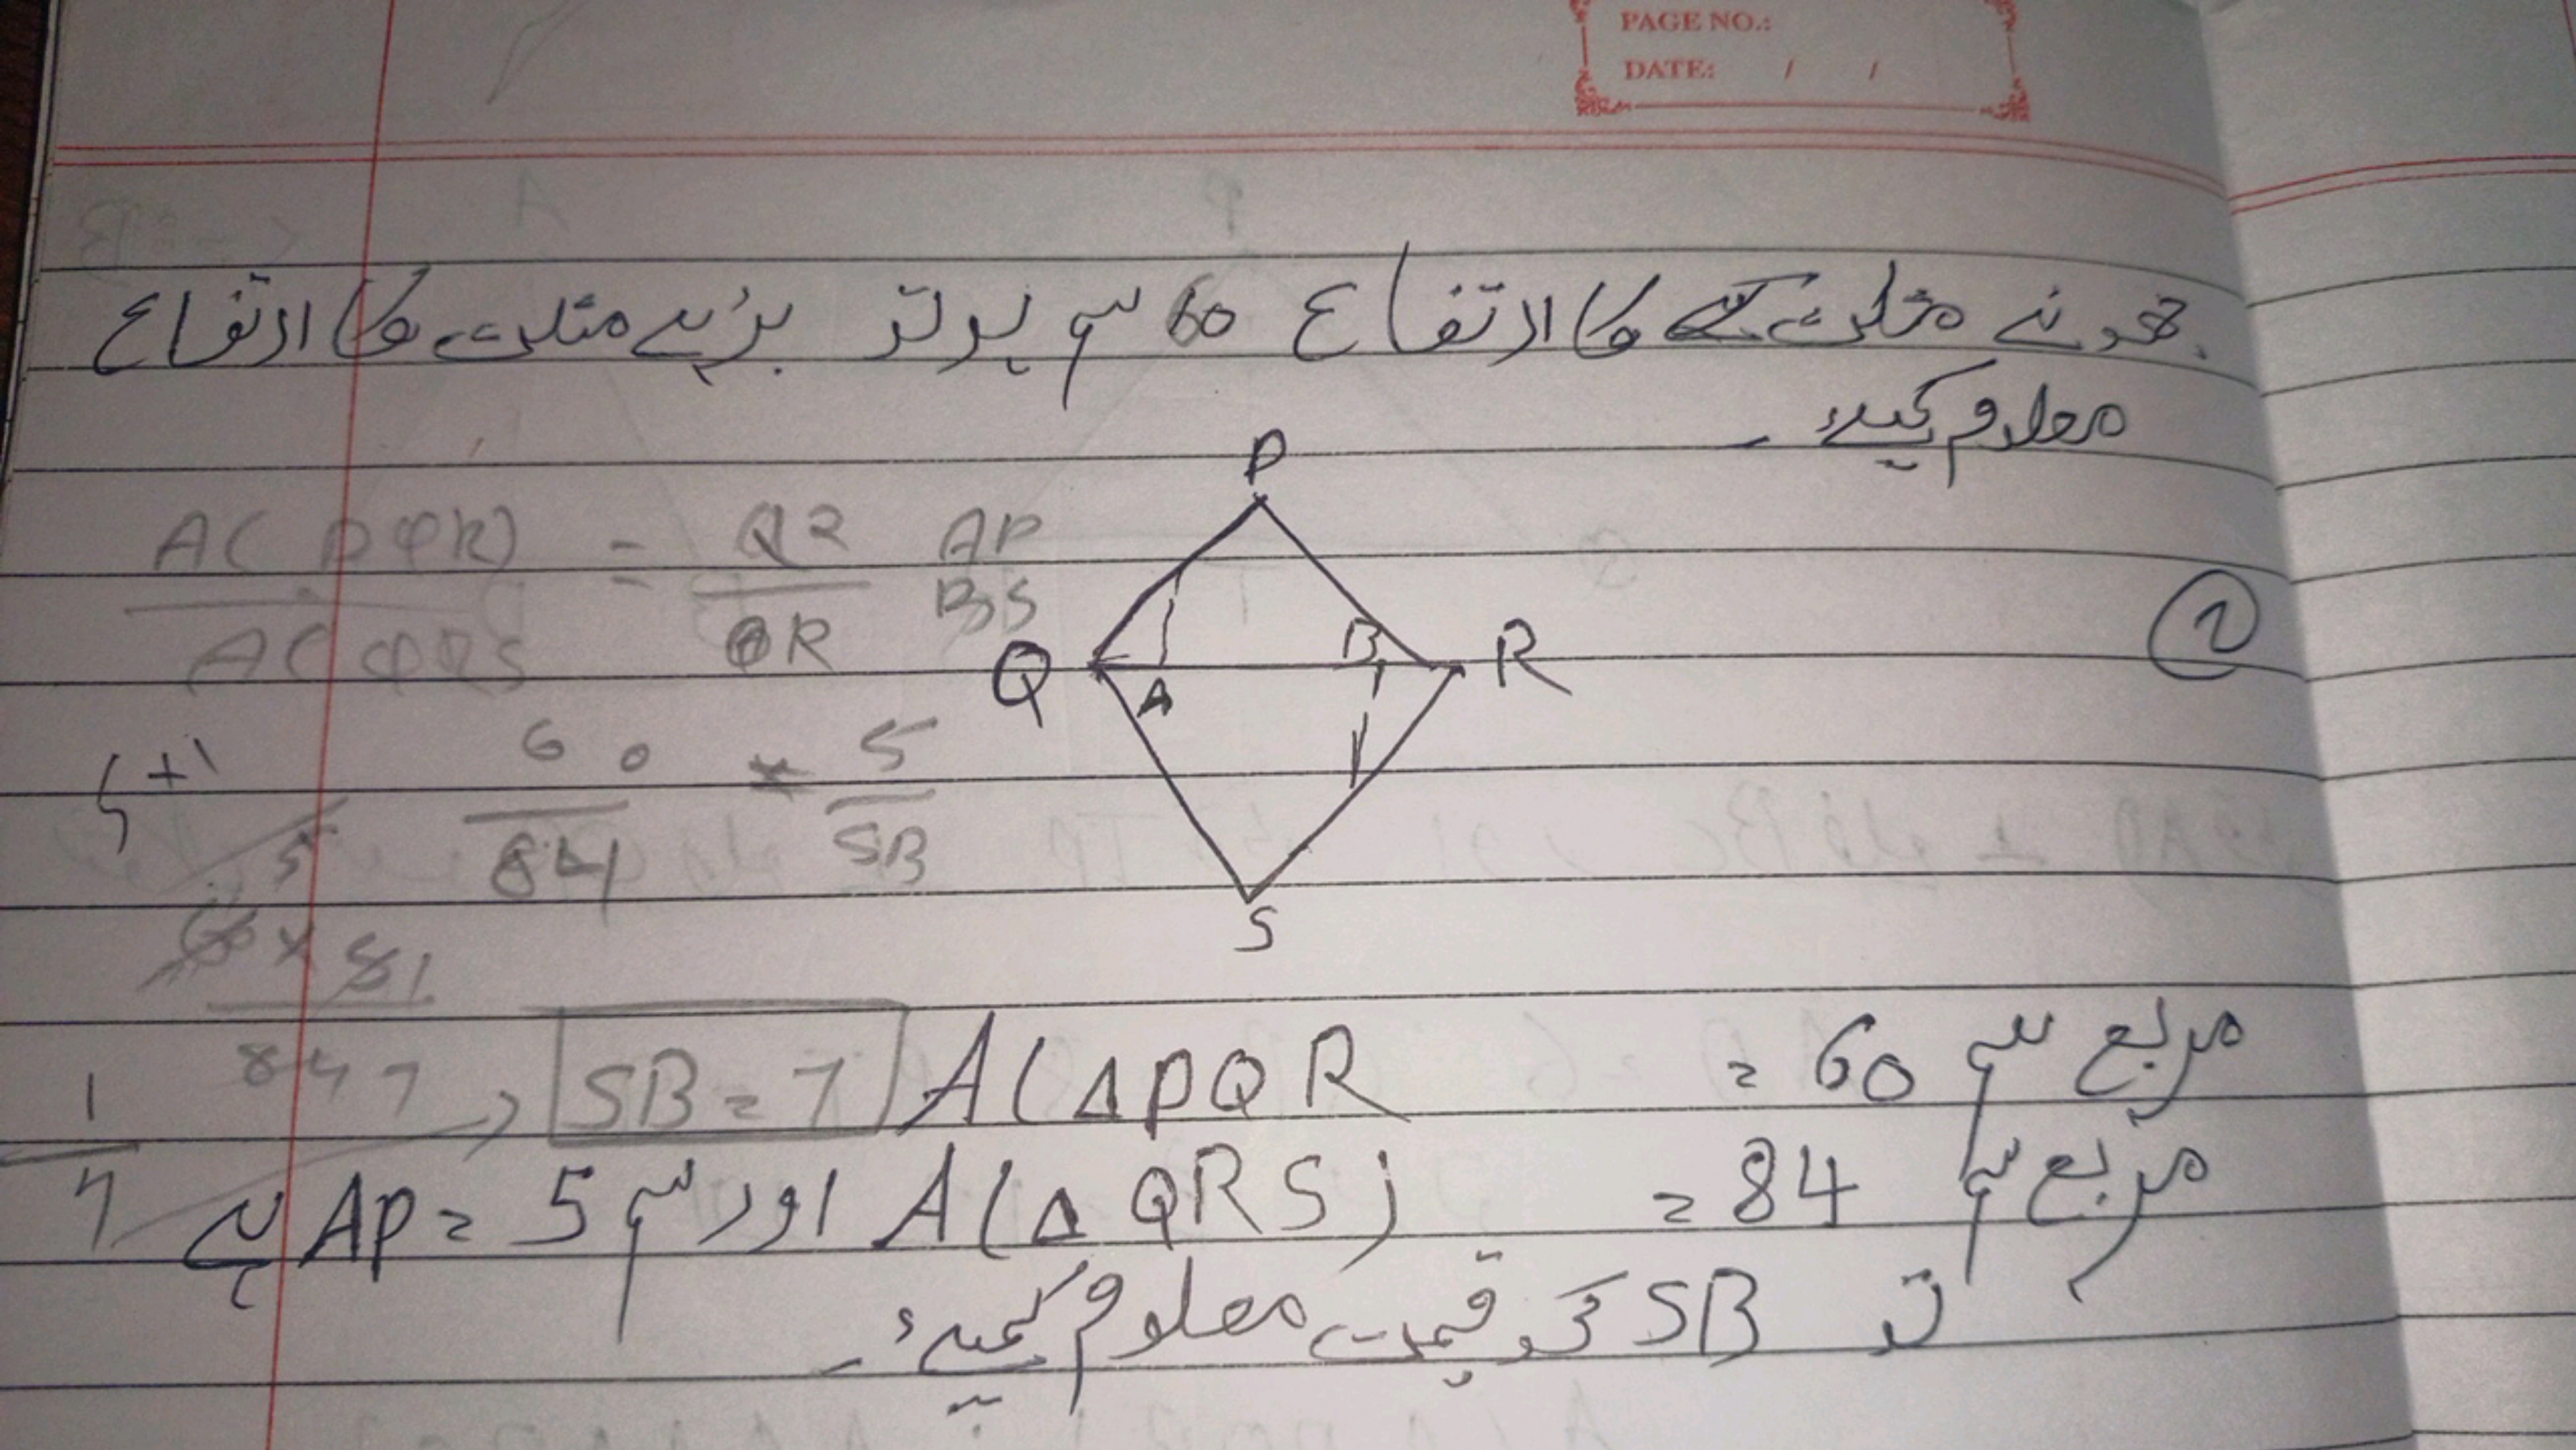 PAGE NO.:
DATE: / /
چھوٹے مثلث کے کا ارتفاع 60 سم ہو تو بڑے مثلث کا ارتفاع
معلوم کیجیے۔
P
A( PQR) = QR AP
A( QRS QR BS
Q A B R
2
60 × 5
84 SB
S
SB = 7
A(ΔPQR = 60 مربع سم
A(Δ QRS) = 84 مربع سم اور AP = 5 سم ہے
تو SB کی قیمت معلوم کیجیے۔